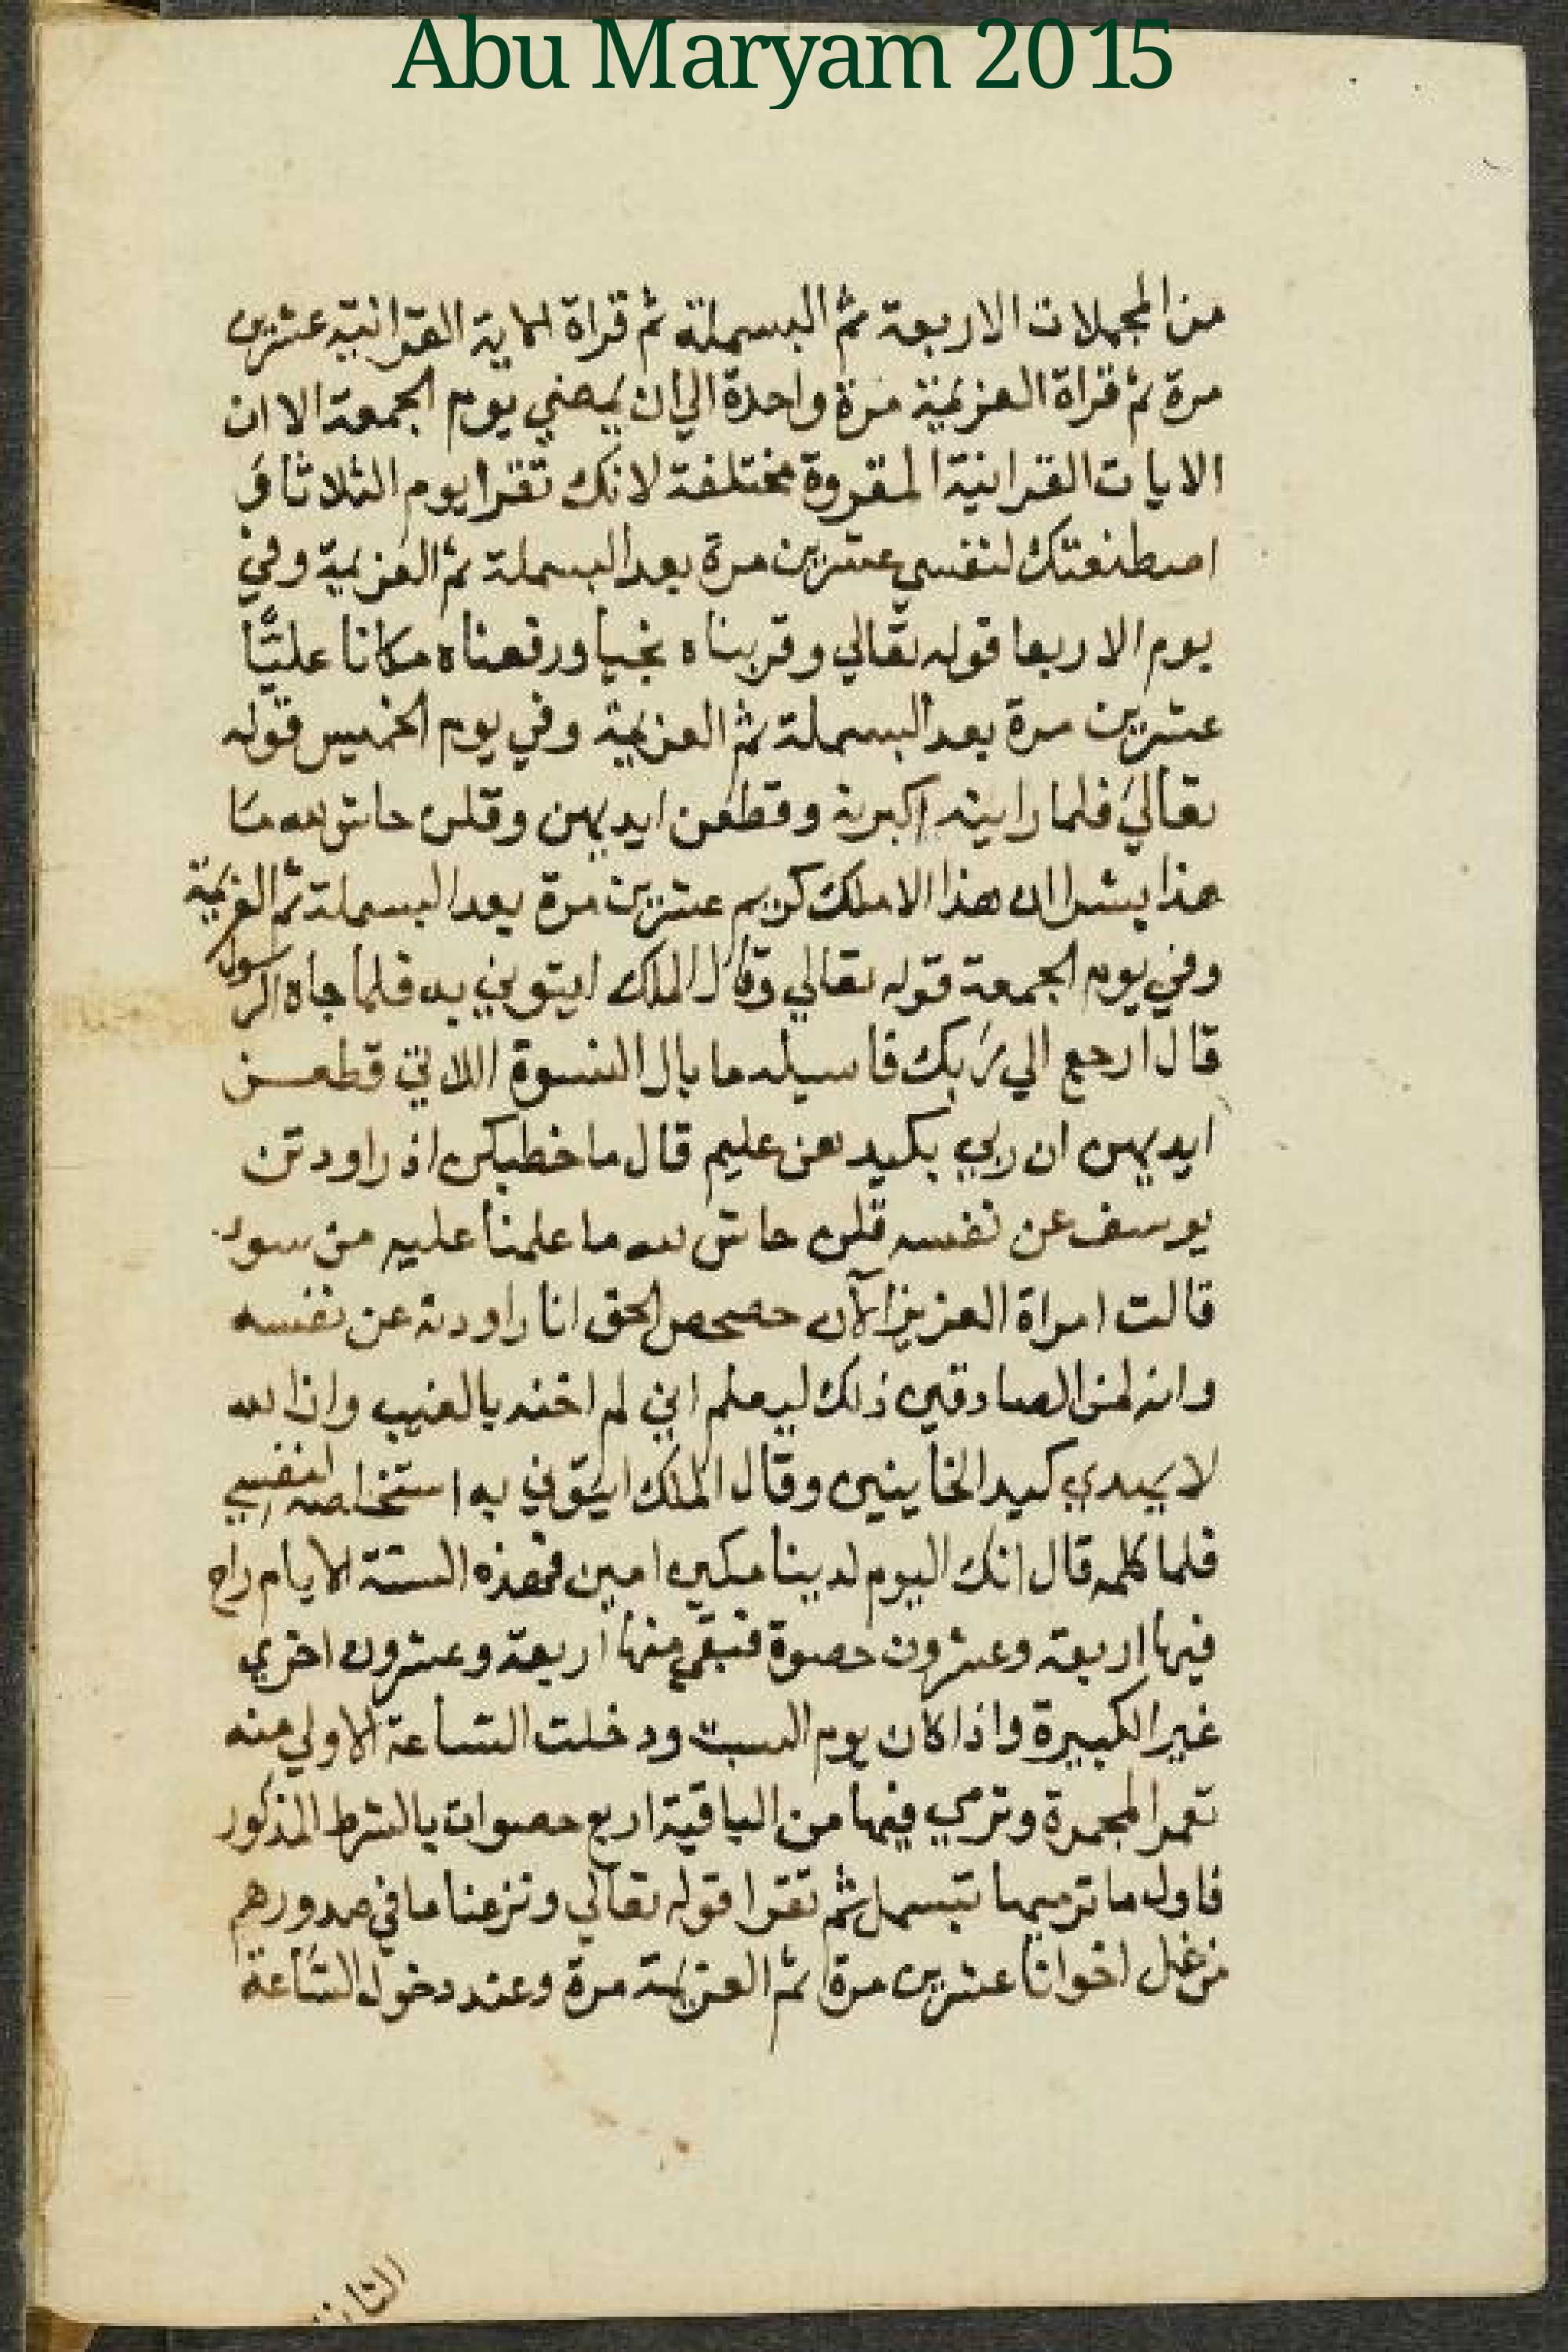 Abu Maryam 2015
من المجملات الاربعة ثم البسملة ثم قراة الاية القرانية عشرين
مرة ثم قراة العزيمة مرة واحدة الي ان يمضي يوم الجمعة الا ان
الايات القرانية المقروة مختلفة لانك تقرا يوم الثلاثا و
اصطنعتك لنفسي عشرين مرة بعد البسملة ثم العزيمة وفي
يوم الاربعا قوله تعالي وقربناه نجيا ورفعناه مكانا عليًّا
عشرين مرة بعد البسملة ثم العزيمة وفي يوم الخميس قوله
تعالي فلما راينه اكبرنه وقطعن ايديهن وقلن حاش لله ما
هذا بشرا ان هذا الا ملك كريم عشرين مرة بعد البسملة ثم العزيمة
وفي يوم الجمعة قوله تعالي وقال الملك ايتوني به فلما جاه الرسول
قال ارجع الي ربك فاسيله ما بال النسوة اللاتي قطعن
ايديهن ان ربي بكيدهن عليم قال ما خطبكن اذ راودتن
يوسف عن نفسه قلن حاش لله ما علمنا عليه من سوء
قالت امراة العزيز الآن حصحص الحق انا راودته عن نفسه
وانه لمن الصادقين ذلك ليعلم اني لم اخنه بالغيب وان الله
لا يهدي كيد الخاينين وقال الملك ايتوني به استخلصه لنفسي
فلما كلمه قال انك اليوم لدينا مكين امين فهذه الستة الايام راح
فيها اربعة وعشرون حصوة فتبقي منها اربعة وعشرون اخري
غير الكبيرة واذا كان يوم السبت ودخلت الساعة الاولي منه
تعمر المجمرة وترمي فيها من الباقية اربع حصوات بالشرط المذكور
فاول ما ترميها تبسمل ثم تقرا قوله تعالي ونزعنا ما في صدورهم
من غل اخوانا عشرين مرة ثم العزيمة مرة وعند دخول الساعة